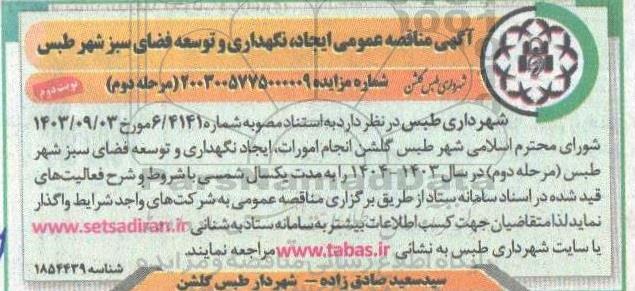 آگهی مناقصه عمومی ایجاد، نگهداری و توسعه فضای سبز شهر طبس
شهرداری طبس گلشن
شماره مزایده ۲۰۰۳۰۰۵۷۷۵۰۰۰۰۰۹ (مرحله دوم)
نوبت دوم
شهرداری طبس در نظر دارد به استناد مصوبه شماره ۶/۴۱۴۱ مورخ ۱۴۰۳/۰۹/۰۳
شورای محترم اسلامی شهر طبس گلشن انجام امورات، ایجاد نگهداری و توسعه فضای سبز شهر
طبس (مرحله دوم) در سال ۱۴۰۳-۱۴۰۴ را به مدت یکسال شمسی با شروط و شرح فعالیت‌های
قید شده در اسناد سامانه ستاد از طریق برگزاری مناقصه عمومی به شرکت‌های واجد شرایط واگذار
نماید لذا متقاضیان جهت کسب اطلاعات بیشتر به سامانه ستاد به شنانی www.setsadiran.ir
یا سایت شهرداری طبس به نشانی www.tabas.ir مراجعه نمایند.
شناسه ۱۸۵۴۴۳۹
سیدسعید صادق زاده – شهردار طبس گلشن